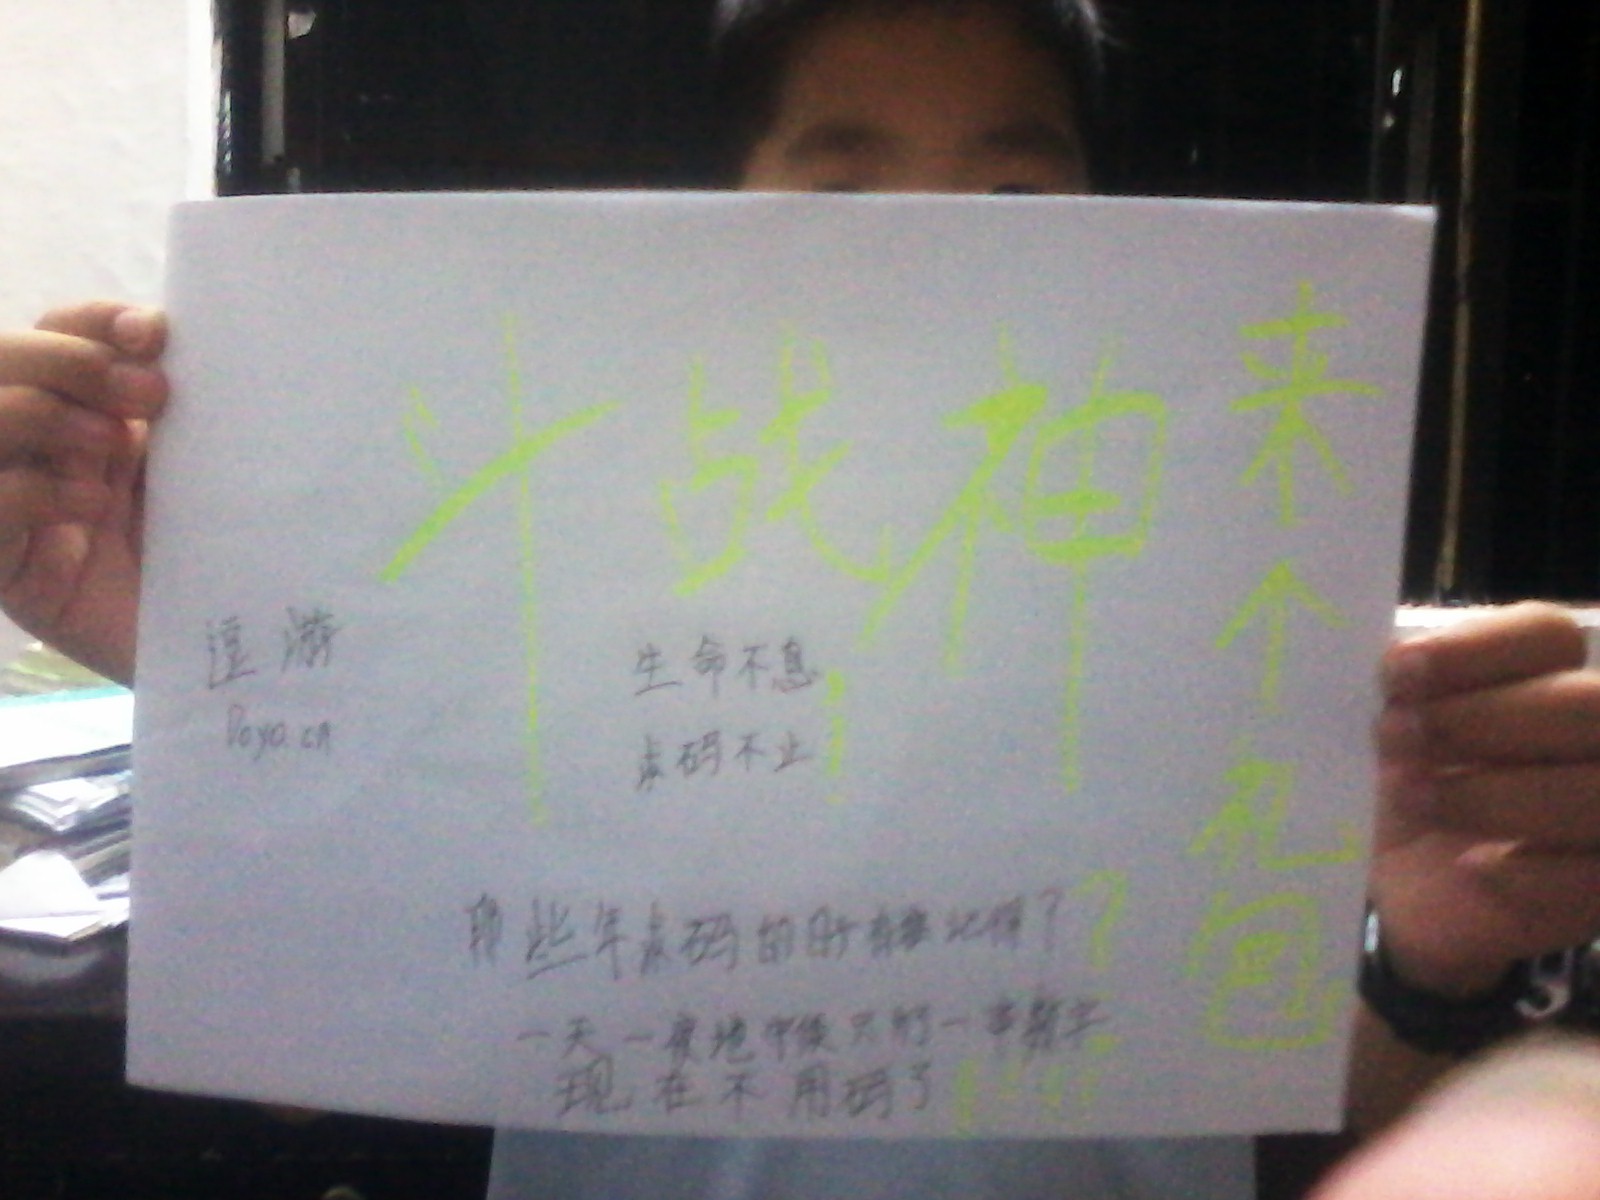 斗战神
来个礼包
逗游
Doyo.cn
生命不息
求码不止!
那些年求码的时有谁记得??
一天一夜地守候只为一串数字
现在不用码了